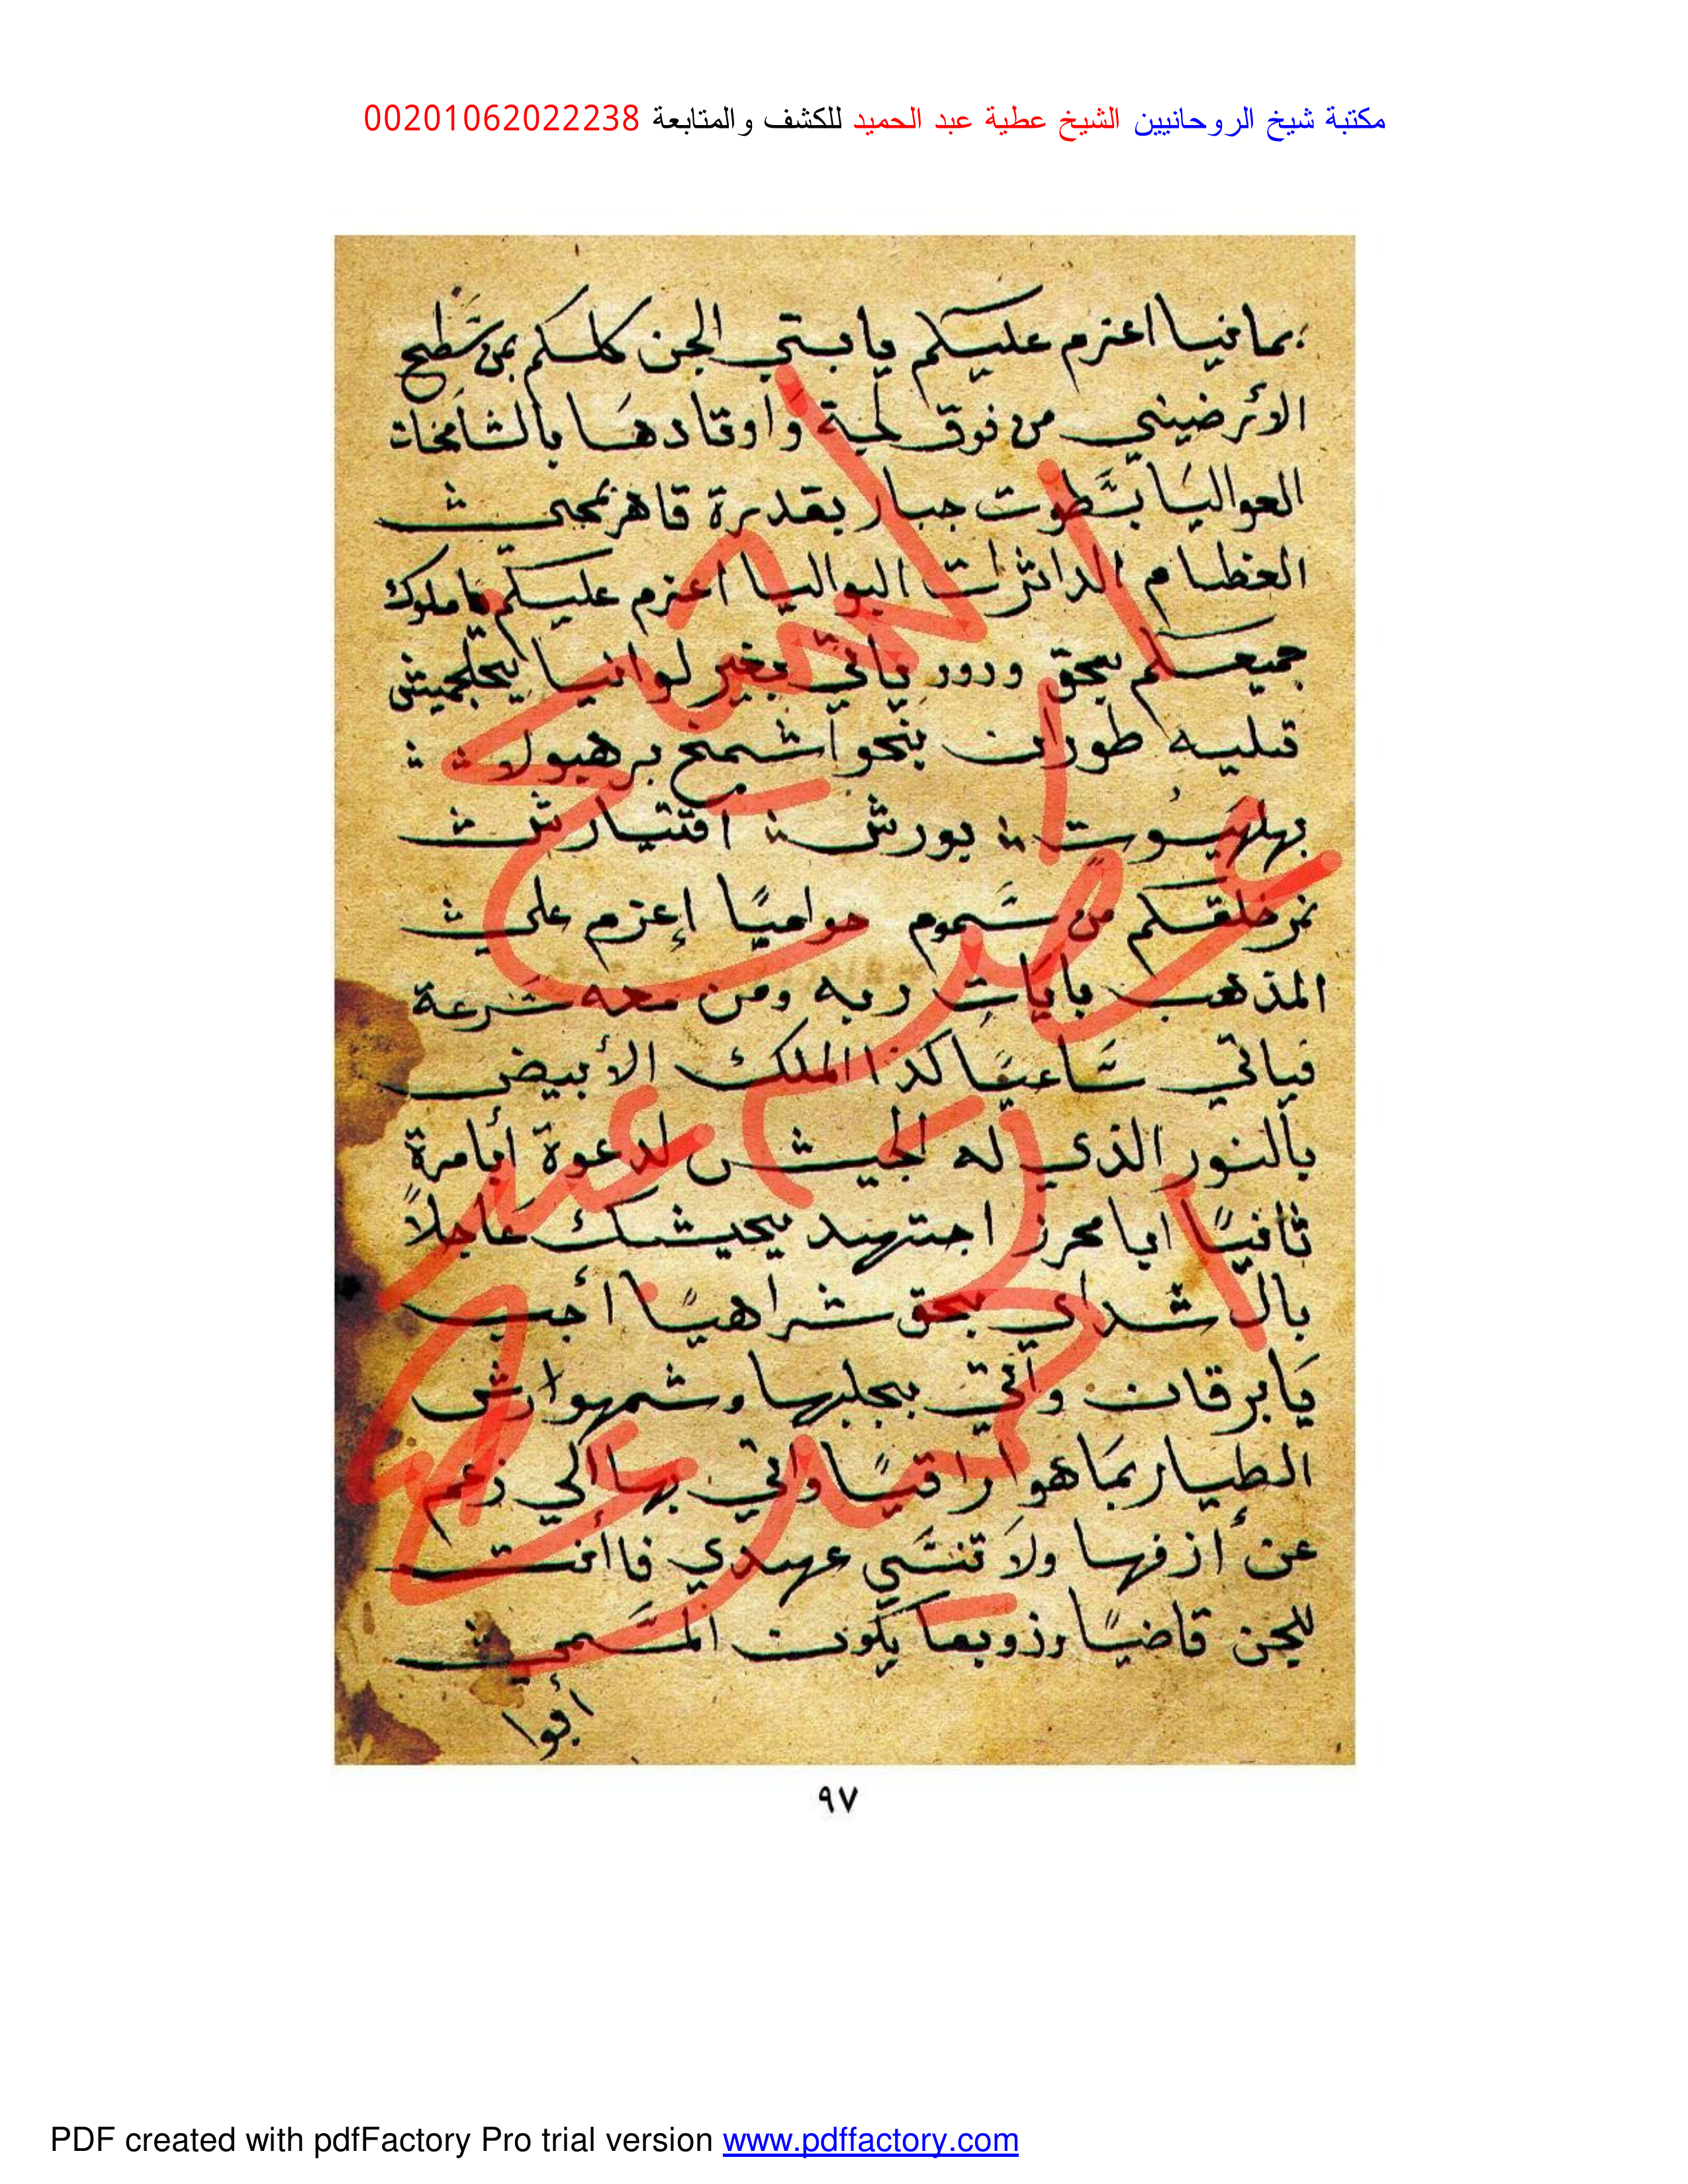 مكتبة شيخ الروحانيين الشيخ عطية عبد الحميد للكشف والمتابعة 00201062022238
بمافيا اعزم عليكم يا بني الجن كلكم بمن سطح
الأرضيني من فوق لجة وأوتادها بالشامخات
العواليا بسطوت جبار بقدرة قاهر محي
العظام الداثرات البواليا اعزم عليكم ياملوك
جميعكم بحق ودود يأتي بغير لوانيا
قليه طوران ينحوا شمخ برهيولا
بهلهيوت بورش اقتيارش
خلقكم من سموم حواميًا إعزم على
المذهب بايات ربه ومن معه سرعة
فياتي ساعيًا كذا الملك الأبيض
بالنور الذي له الجيش لدعوة أبامرة
ثانيًا ايا محرز اجتهد بجيشك عاجلاً
بال شداي بحق شراهيًا أجب
يا برقان وأتي بجلبها وشمهوارش
الطيار بما هوا راقيًا واتي بها الي زعم
عن أزفها ولا تنسي عهدي فاأنت
للجن قاضيًا وزوبعا يكون المسمى
أبوا
٩٧
الشيخ
عطية
عبد
الحميد
PDF created with pdfFactory Pro trial version www.pdffactory.com